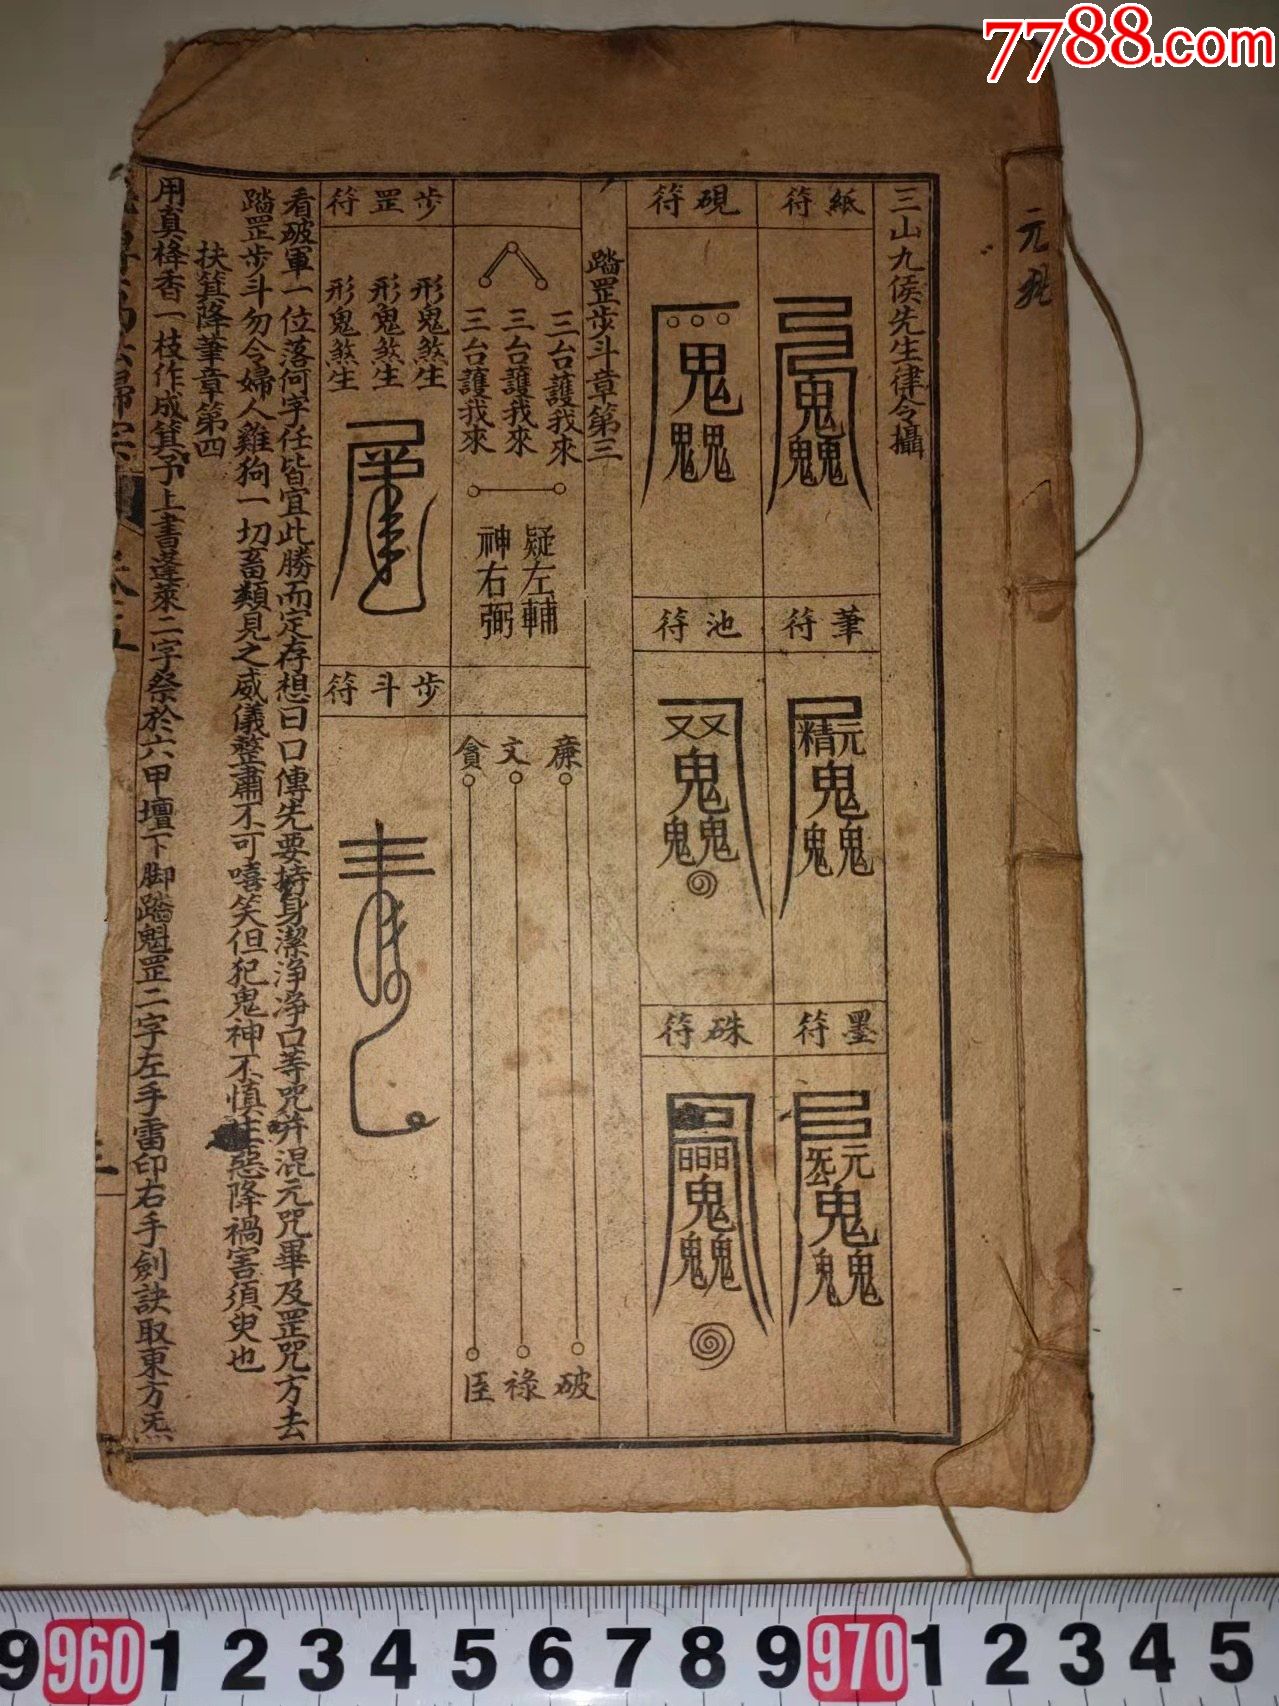 7788.com
元
三山九侯先生律令攝
紙符
筆符
墨符
硯符
池符
硃符
踏罡步斗章第三
三台護我來
三台護我來
三台護我來
疑左輔
神右弼
廉
文
貪
破
祿
臣
步罡符
形鬼煞生
形鬼煞生
形鬼煞生
步斗符
看破軍一位落何字任皆宜此勝而定存想曰口傳先要持身潔淨淨口等咒并混元咒畢及罡咒方去
踏罡步斗勿令婦人雞狗一切畜類見之威儀整肅不可嘻笑但犯鬼神不慎生惡降禍害須臾也
扶箕降筆章第四
用真絳香一枝作成箕予上書蓬萊二字祭於六甲壇下脚踏魁罡二字左手雷印右手劍訣取東方炁
9 960 1 2 3 4 5 6 7 8 9 970 1 2 3 4 5